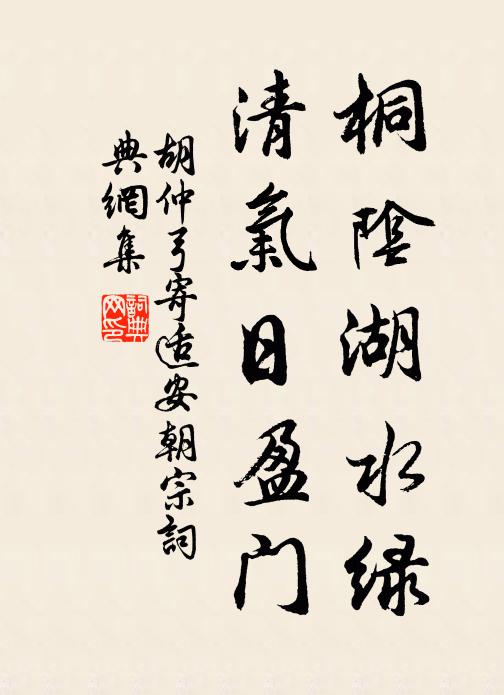 桐陰湖水緑
清氣日盈门
胡仲弓寄适安朝宗詞
典網集
詞典网印